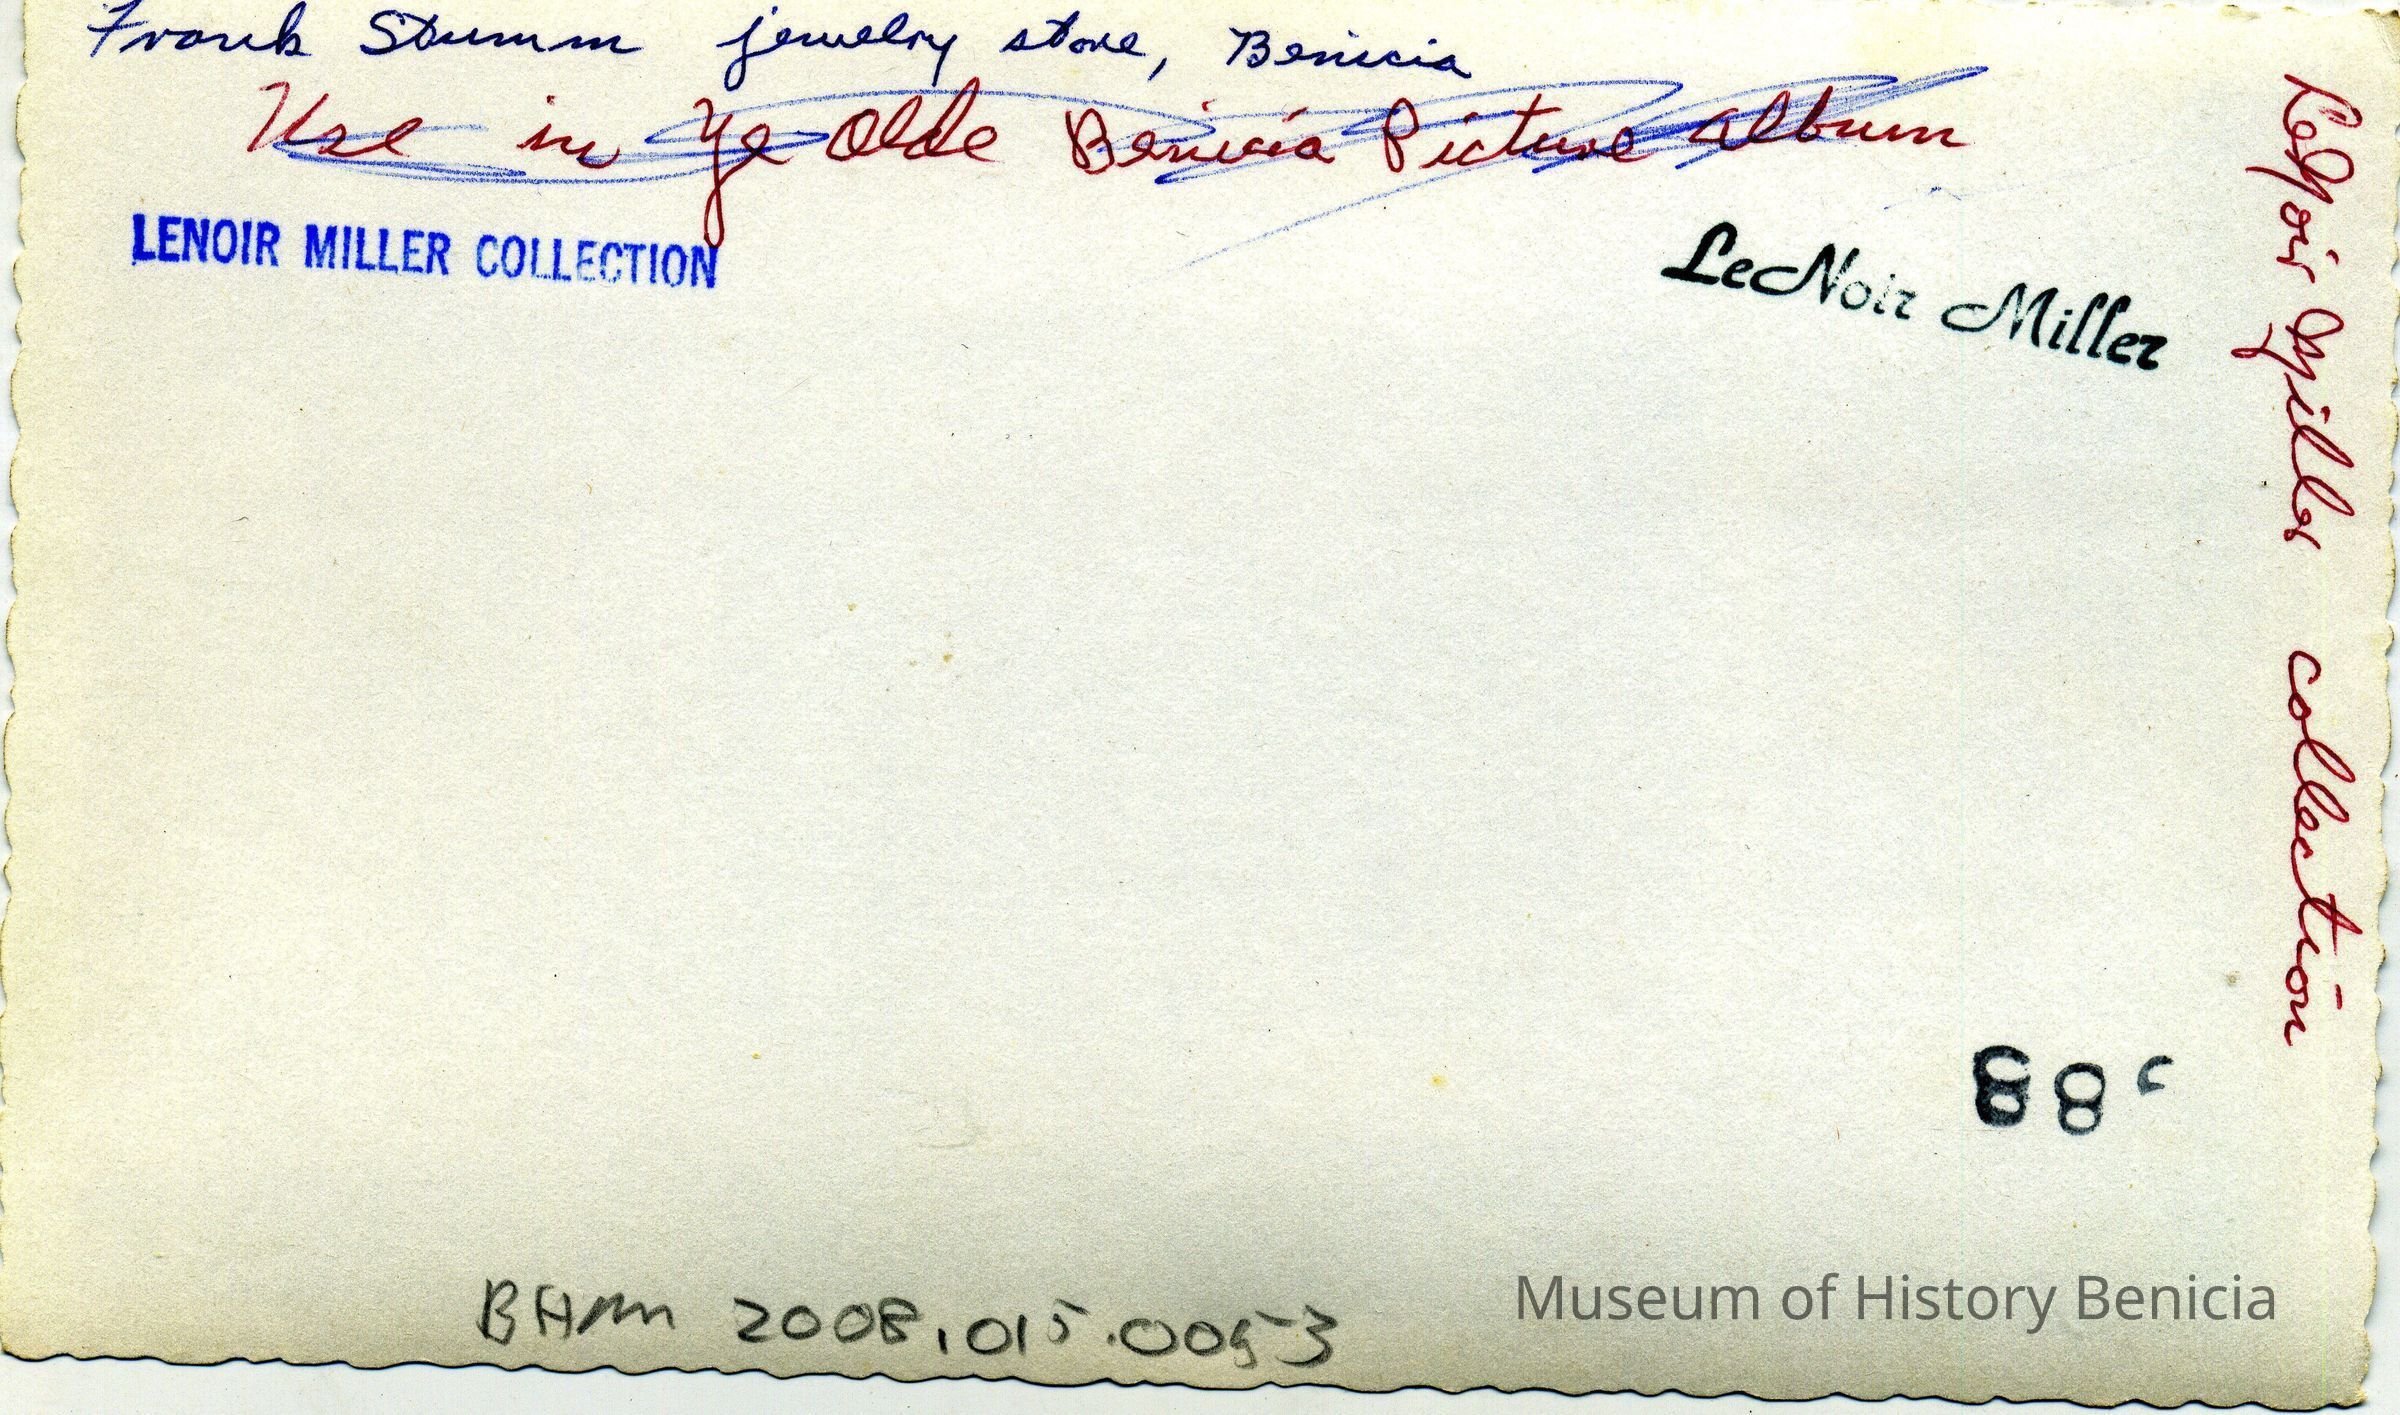 Frank Stumm jewelry store, Benicia
Use in Ye Olde Benicia Picture album
LENOIR MILLER COLLECTION
LeNoir Miller
LeNoir Miller collection
BHM 2008.015.0053
Museum of History Benicia